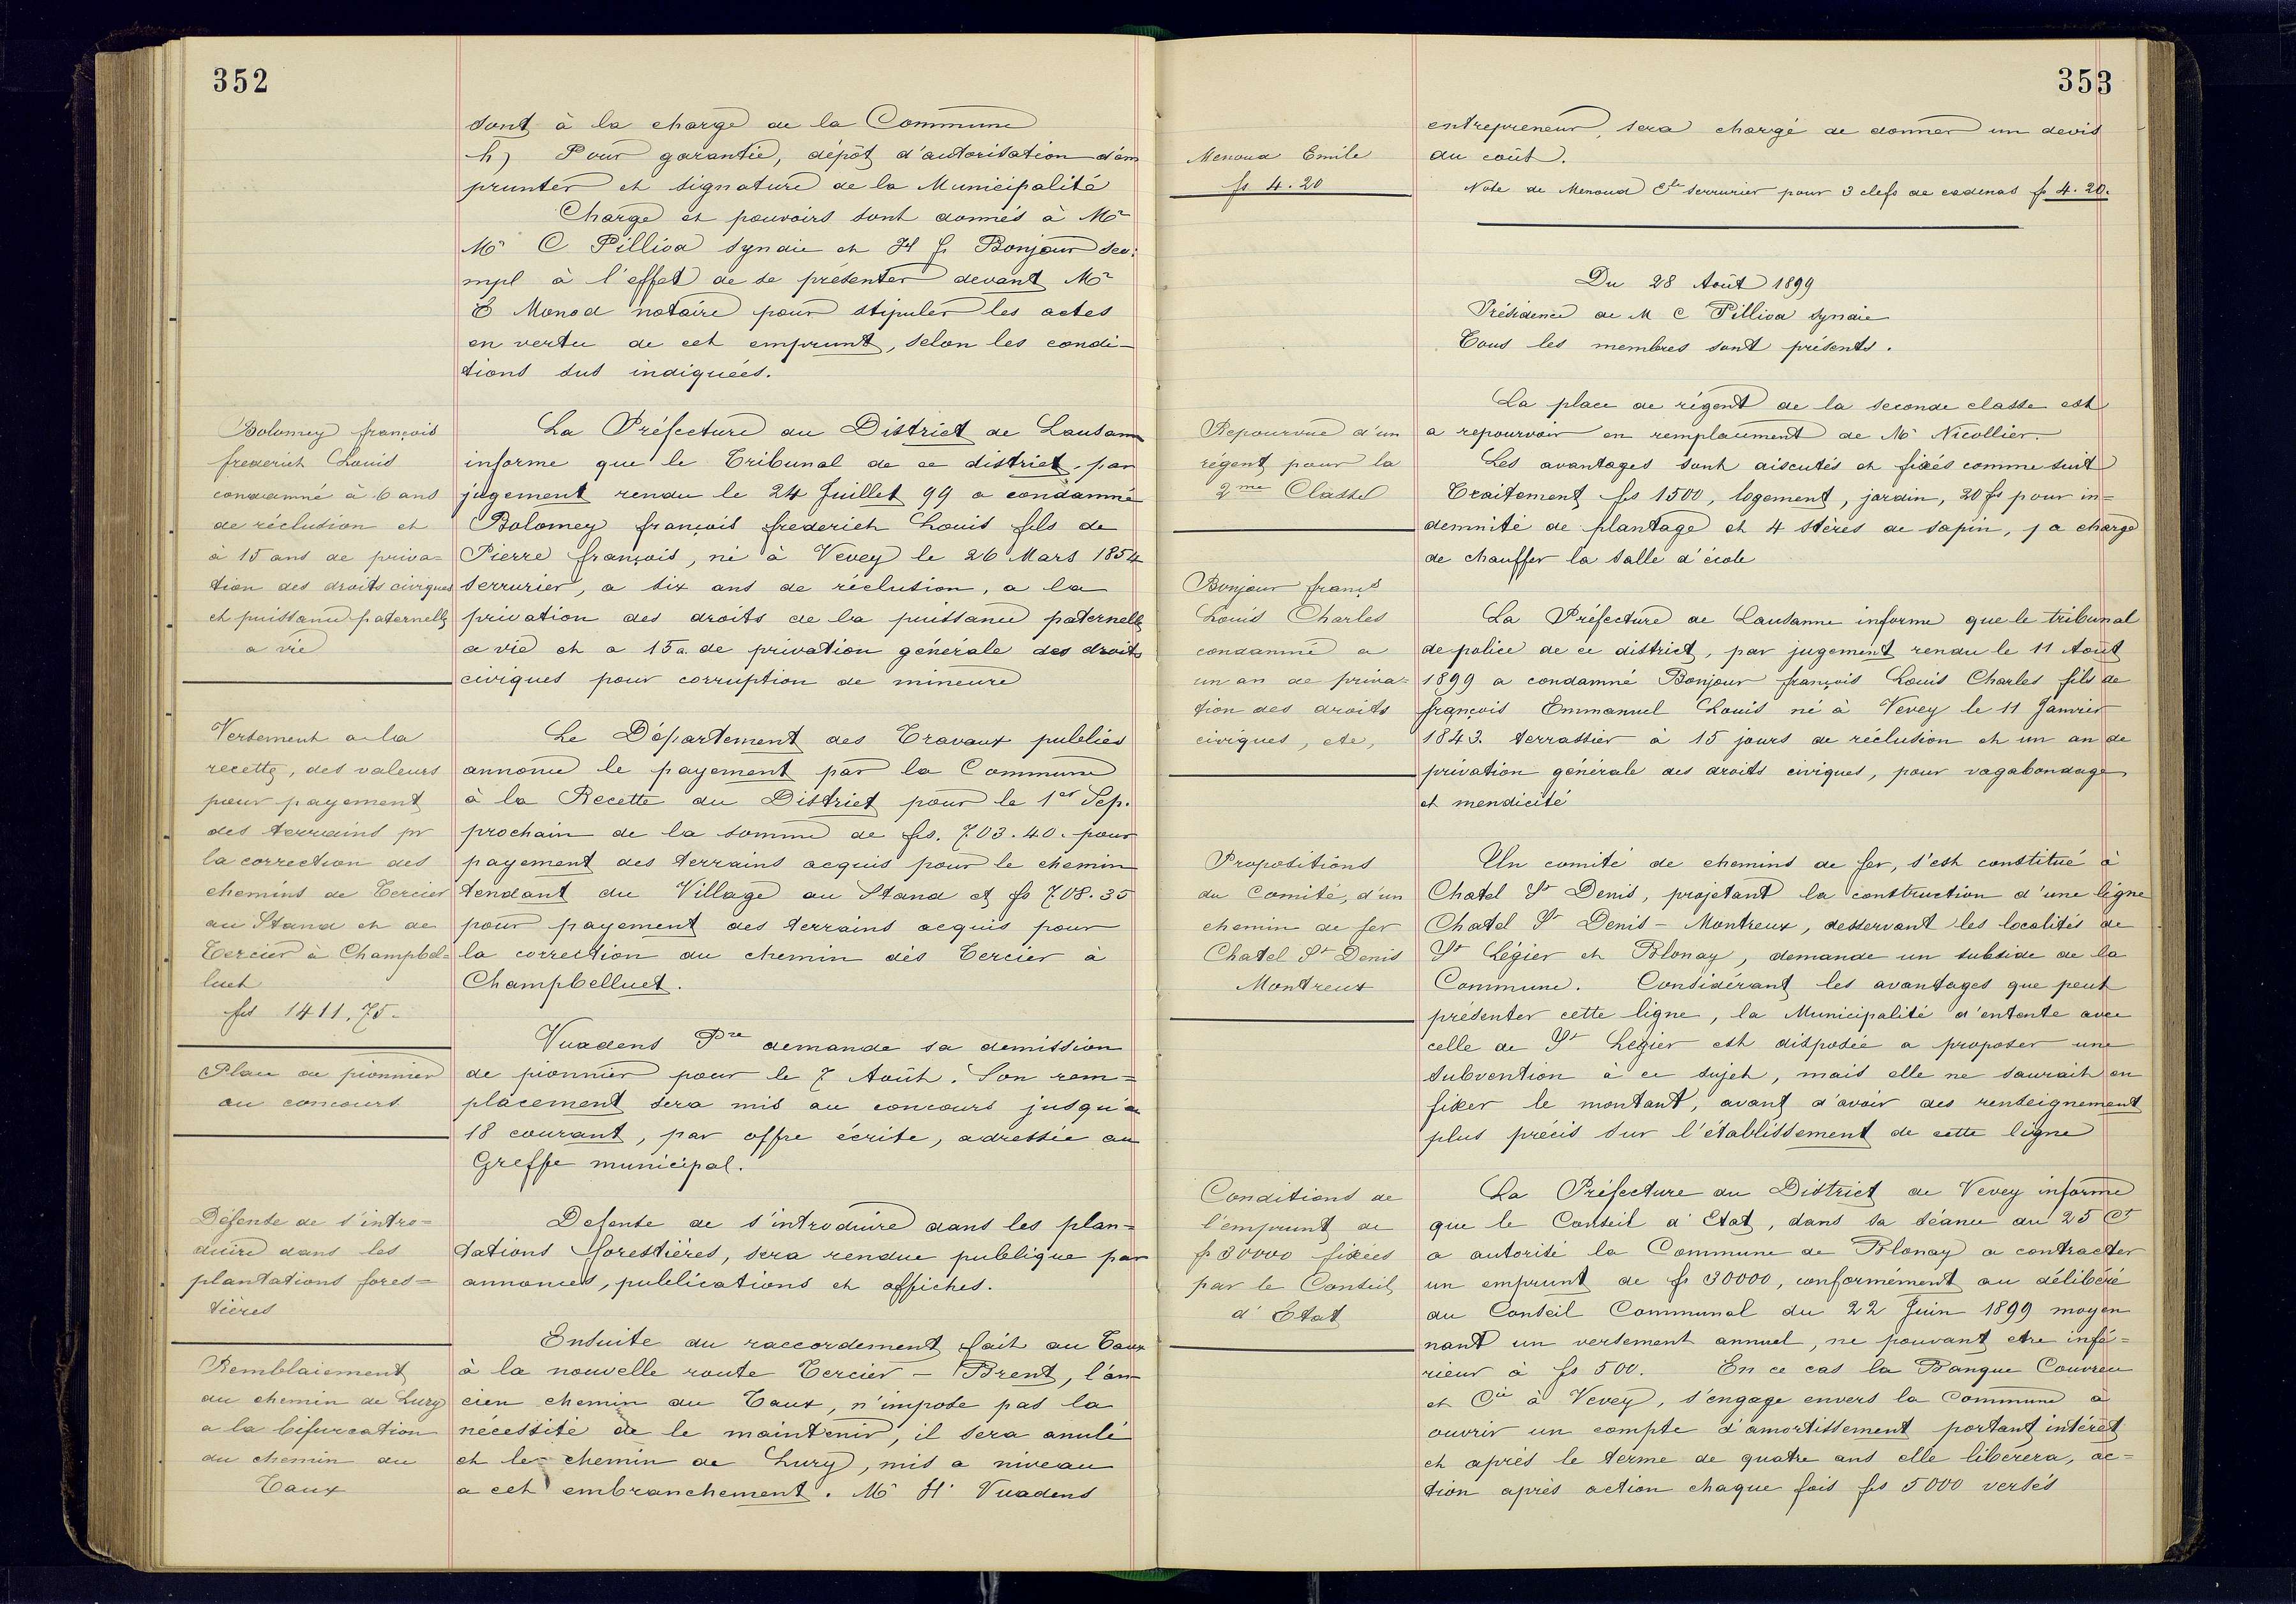 352
sont à la charge de la Commune
h) Pour garantie, dépôt d'autorisation d'em
prunter et signature de la Municipalité
Charge et pouvoirs sont donnés à Mr
Mr C Pilliod syndic et H fs Bonjour sec:
mpl à l'effet de se présenter devant Mr
E Monod notaire pour stipuler les actes
en vertu de cet emprunt, selon les condi-
tions sus indiquées.
Bolomey françois
frederich Louis
condamné à 6 ans
de réclusion et
à 15 ans de priva=
tion des droits civiques
et puissance paternelle
a vie
La Préfecture du District de Lausann
informe que le Tribunal de ce district, par
jugement rendu le 24 Juillet 99 a condamné
Bolomey françois frederich Louis fils de
Pierre françois, né à Vevey le 26 Mars 1854
serrurier, a six ans de réclusion, a la
privation des droits de la puissance paternelle
a vie et a 15 a. de privation générale des droits
civiques pour corruption de mineure
Versement a la
recette, des valeurs
pour payement
des terrains pr
la correction des
chemins de Tercier
au Stand et de
Tercier à Champbel=
luet
frs 1411.75.
Le Département des Travaux publics
annonce le payement par la Commune
à la Recette du District pour le 1er Sep.
prochain de la somme de frs. 703.40. pour
payement des terrains acquis pour le chemin
tendant du Village au Stand et fs 708.35
pour payement des terrains acquis pour
la correction du chemin dès Tercier à
Champbelluet.
Place de pionnier
au concours
Vuadens Pre demande sa demission
de pionnier pour le 7 Août. Son rem=
placement sera mis au concours jusqu'au
18 courant, par offre écrite, adressée au
Greffe municipal.
Défense de s'intro=
duire dans les
plantations fores=
tières
Defense de s'introduire dans les plan=
tations forestières, sera rendue publique par
annonces, publications et affiches.
Remblaiement
du chemin de Lury
a la bifurcation
du chemin du
Taux
Ensuite du raccordement fait au Taux
à la nouvelle route Tercier - Brent, l'an-
cien chemin du Taux, n'impose pas la
nécessité de le maintenir, il sera anulé
et le chemin de Lury, mis a niveau
a cet embranchement. Mr H. Vuadens
353
entrepreneur, sera chargé de donner un devis
du coût.
Menoud Emile
fs 4.20
Note de Menoud Ele serrurier pour 3 clefs de cadenas fs 4.20.
Du 28 Août 1899
Présidence de M C Pilliod syndic
Tous les membres sont présents.
Repourvue d'un
régent pour la
2me Classe
La place de régent de la seconde classe est
a repourvoir en remplacement de Mr Nicollier.
Les avantages sont discutés et fixés comme suit
Traitement frs 1500, logement, jardin, 20 fs pour in=
demnité de plantage et 4 stères de sapin, à charge
de chauffer la salle d'école
Bonjour franç
Louis Charles
condamné a
un an de priva=
tion des droits
civiques, etc,
La Préfecture de Lausanne informe que le tribunal
de police de ce district, par jugement rendu le 11 Août
1899 a condamné Bonjour françois Louis Charles fils de
françois Emmanuel Louis né à Vevey le 11 Janvier
1843. terrassier à 15 jours de réclusion et un an de
privation générale des droits civiques, pour vagabondage
et mendicité
Propositions
du Comité, d'un
chemin de fer
Chatel St Denis
Montreux
Un comité de chemins de fer, s'est constitué à
Chatel St Denis, projetant la construction d'une ligne
Chatel St Denis - Montreux, desservant les localités de
St Légier et Blonay, demande un subside de la
Commune. Considérant les avantages que peut
présenter cette ligne, la Municipalité d'entente avec
celle de St Legier est disposée a proposer une
subvention à ce sujet, mais elle ne saurait en
fixer le montant, avant d'avoir des renseignement
plus précis sur l'établissement de cette ligne
Conditions de
l'emprunt de
fs 30000 fixées
par le Conseil
d'Etat
La Préfecture du District de Vevey informe
que le Conseil d'Etat, dans sa séance du 25 Ct
a autorisé la Commune de Blonay a contracter
un emprunt de fs 30000, conformément au délibéré
du Conseil Communal du 22 Juin 1899 moyen
nant un versement annuel, ne pouvant etre infé=
rieur à fs 500. En ce cas la Banque Couvreu
et Cie à Vevey, s'engage envers la Commune à
ouvrir un compte d'amortissement portant intérêt
et après le terme de quatre ans elle libérera, ac=
tion après action chaque fois frs 5000 versés